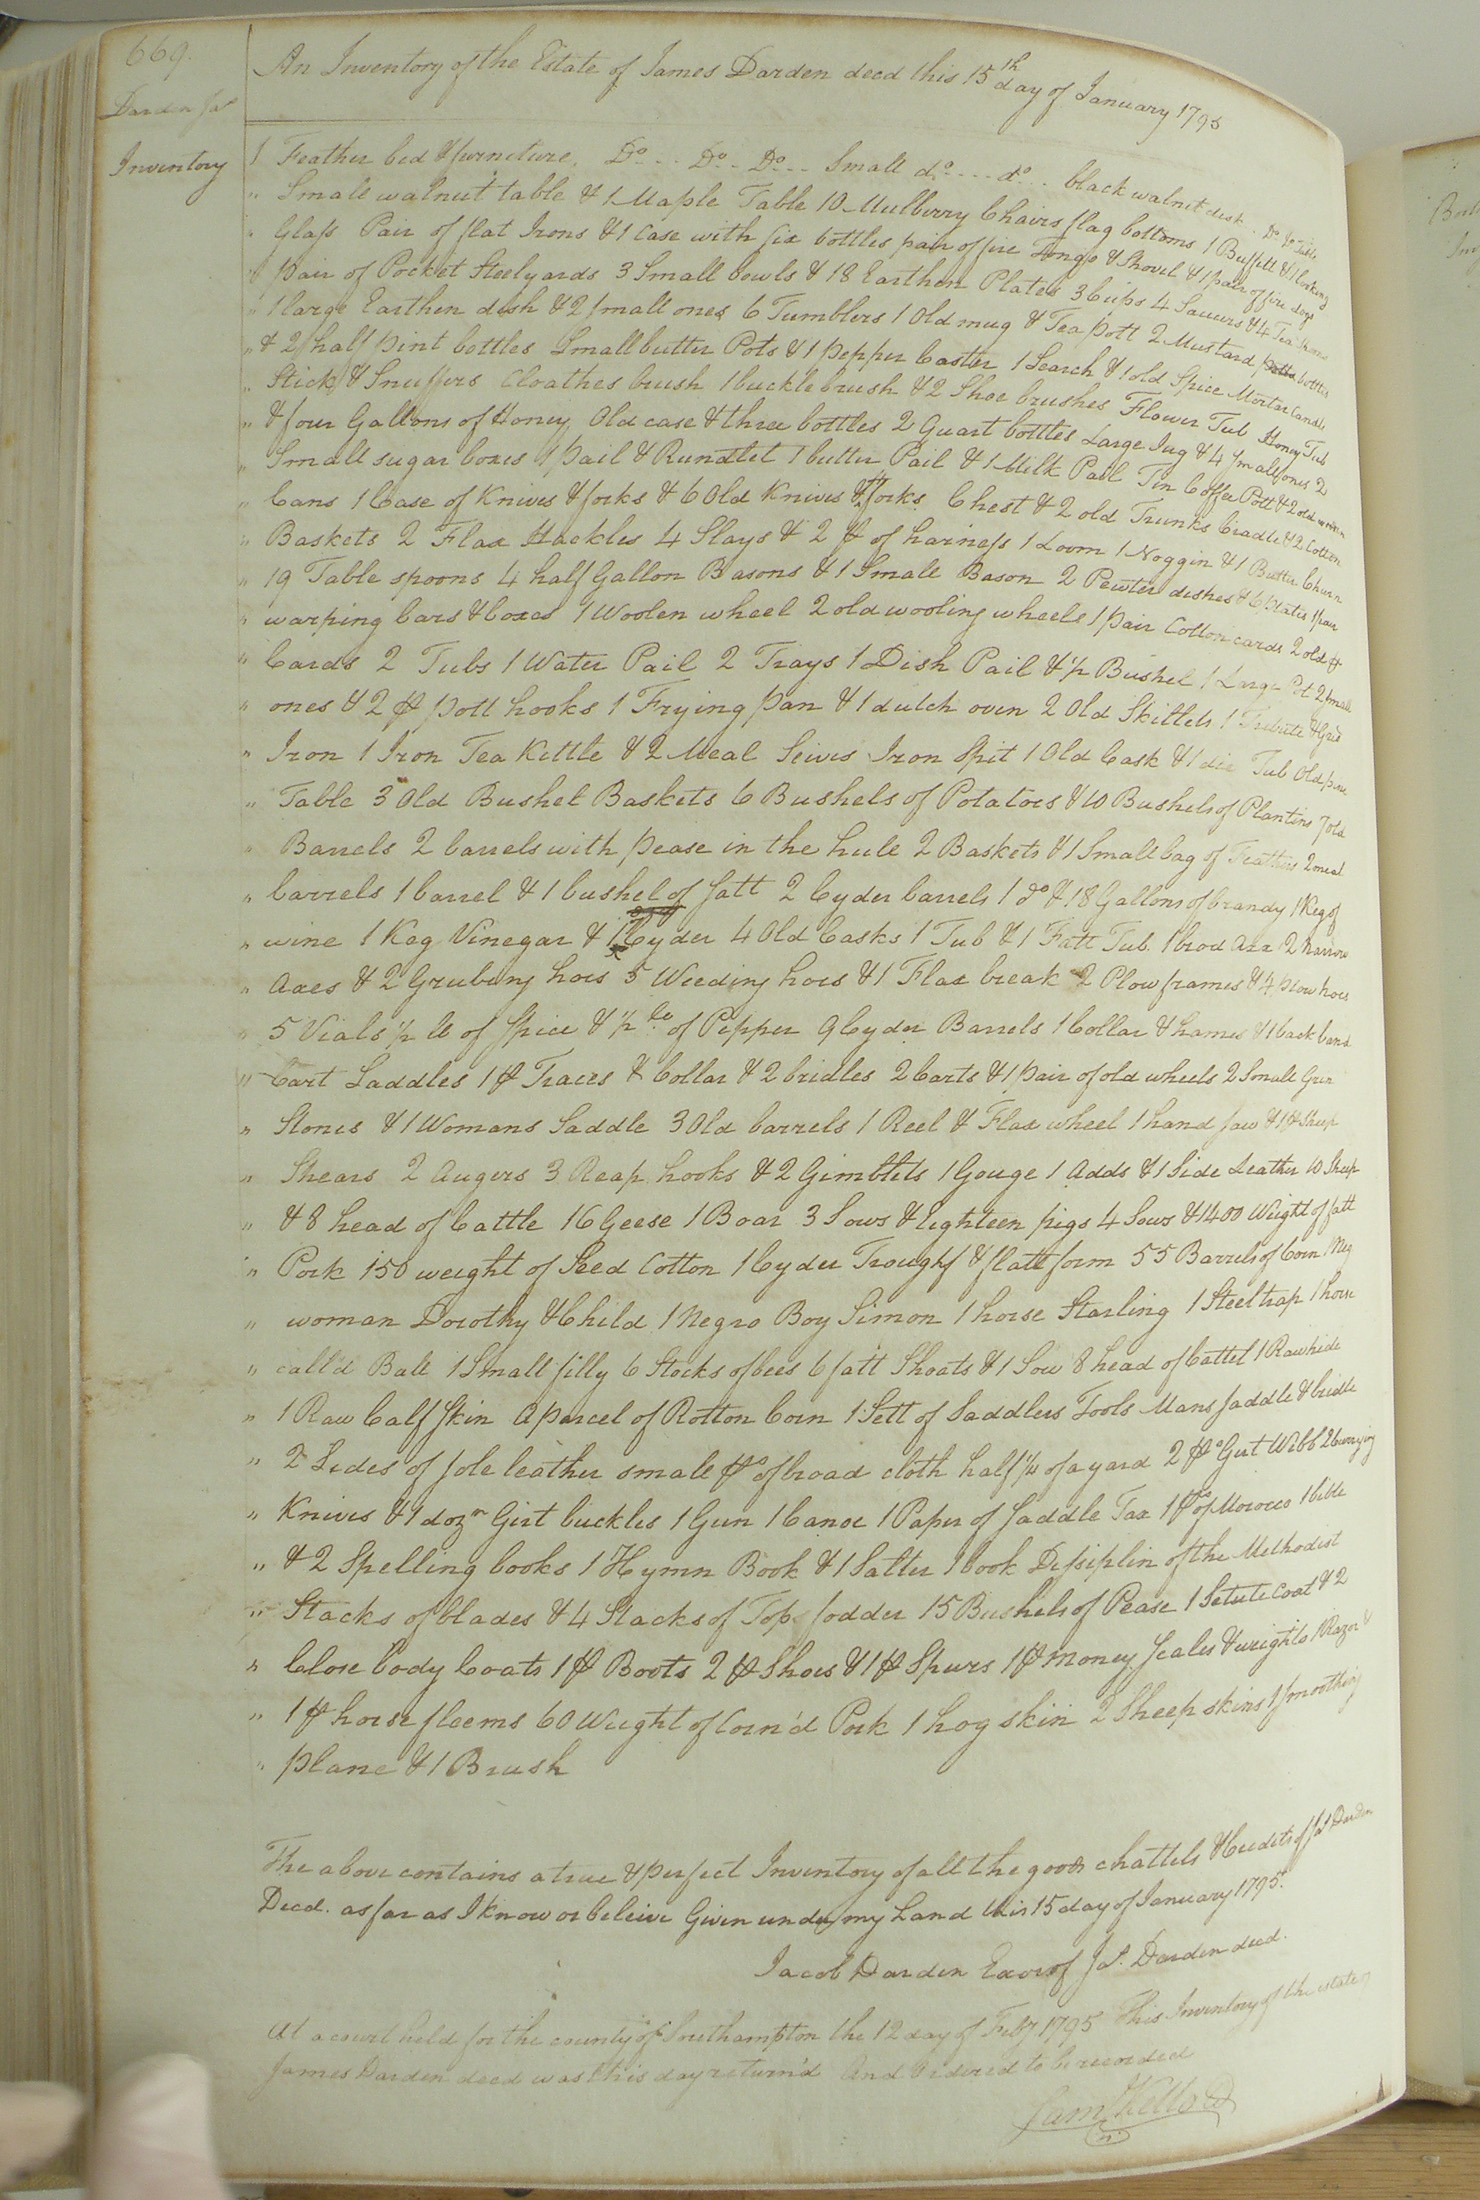 669.
An Inventory of the Estate of James Darden decd this 15th day of January 1795
Darden Jas
Inventory
1 Feather bed & furniture. Do... Do.. Do... Small do.... do... black walnut desk. Do. Do Table
" Small walnut table & 1 Maple Table 10 Mulberry Chairs flag bottoms 1 Buffett & 1 looking
" Glass Pair of flat Irons & 1 Case with six bottles pair of fire Tongs & Shovel & 1 pair of fire dogs
" pair of Pocket Steelyards 3 Small bowls & 18 Earthen Plates 3 Cups 4 Saucers & 4 Tea Spoons
" 1 large Earthen dish & 2 small ones 6 Tumblers 1 Old mug & Tea pott 2 Mustard bottles
" & 2 half pint bottles Small butter Pots & 1 pepper Caster 1 Search & 1 old Spice Mortar Candle
" Stick & Snuffers Cloathes brush 1 buckle brush & 2 Shoe brushes Flower Tub Honey Tub
" & four Gallons of Honey Old case & three bottles 2 Quart bottles Large Jug & 4 small ones 2
" Small sugar boxes 1 pail & Rundlet 1 butter Pail & 1 Milk Pail Tin Coffee Pott & 2 old
" Cans 1 Case of Knives & forks & 6 Old Knives & forks Chest & 2 old Trunks Cradle & 2 Cotton
" Baskets 2 Flax Hackles 4 Slays & 2 pr of harness 1 Loom 1 Noggin & 1 Butter Churn
" 19 Table spoons 4 half Gallon Basons & 1 Small Bason 2 Pewter dishes & 6 plates 1 pair
" warping bars & boxes 1 Woolen wheel 2 old wooling wheels 1 pair Cotton cards 2 old pr
" Cards 2 Tubs 1 Water Pail 2 Trays 1 Dish Pail & 1/2 Bushel 1 Large Pot 2 small
" ones & 2 pr pott hooks 1 Frying pan & 1 dutch oven 2 Old Skillets 1 & Grid
" Iron 1 Iron Tea Kettle & 2 Meal Seives Iron Spit 1 Old Cask & 1 die Tub Old pine
" Table 3 Old Bushel Baskets 6 Bushels of Potatoes & 10 Bushels of Plantins 7 old
" Barrels 2 barrels with pease in the hule 2 Baskets & 1 Small bag of Feathers 2 meal
" barrels 1 barrel & 1 bushel of salt 2 Cyder barrels 1 do & 18 Gallons of brandy 1 Keg of
" wine 1 Keg Vinegar & 1 Cyder 4 Old Casks 1 Tub & 1 Fatt Tub. 1 brod Axx 2 narrow
" Axes & 2 Grubing hoes 5 Weeding hoes & 1 Flax break 2 Plow frames & 4 plow hoes
" 5 Vials 1/2 lb of Spice & 1/2 lb of Pepper 9 Cyder Barrels 1 Collar & hames & 1 back band
" Cart Saddles 1 pr Traces & Collar & 2 bridles 2 Carts & 1 pair of old wheels 2 Small Grin
" Stones & 1 Womans Saddle 3 Old barrels 1 Reel & Flax wheel 1 hand saw & 1 pr Sheep
" Shears 2 Augers 3 Reap hooks & 2 Gimblets 1 Gouge 1 Adds & 1 Side Leather 10 Sheep
" & 8 head of Cattle 16 Geese 1 Boar 3 Sows & Eighteen pigs 4 Sows & 1400 Weight of fatt
" Pork 150 weight of Seed Cotton 1 Cyder Trough & flatt form 55 Barrels of Corn 1 Neg
" woman Dorothy & Child 1 Negro Boy Simon 1 horse Starling 1 Steel trap 1 horse
" calld Ball 1 Small filly 6 Stocks of bees 6 fatt Shoats & 1 Sow 8 head of Cattel 1 Rawhide
" 1 Raw Calf Skin a parcel of Rotton Corn 1 Sett of Saddlers Tools Mans saddle & bridle
" 2 Sides of sole leather small ps of broad cloth half 1/4 of a yard 2 ps Girt Webb 2 currying
" Knives & 1 dozn Girt buckles 1 Gun 1 Canoe 1 Paper of Saddle Tax 1 ps of Morocco 1 bible
" & 2 Spelling books 1 Hymn Book & 1 Salter 1 book Desiplin of the Methodist
" Stacks of blades & 4 Stacks of Top fodder 15 Bushels of Pease 1 Setute Coat & 2
" Close body Coats 1 pr Boots 2 pr Shoes & 1 pr Spurs 1 pr money Scales & weights 1 Razor &
" 1 pr horse fleems 60 Weight of Corn'd Pork 1 hog skin 2 Sheep skins 1 smoothing
" plane & 1 Brush
The above contains a true & perfect Inventory of all the goods chattels & Credits of Jas Darden
Decd. as far as I know or beleive Given under my hand this 15 day of January 1795.
Jacob Darden Exor of Jas. Darden decd.
At a court held for the county of Southampton the 12 day of Feby 1795 This Inventory of the estate of
James Darden decd was this day return'd And Ordered to be recorded
Saml Kello